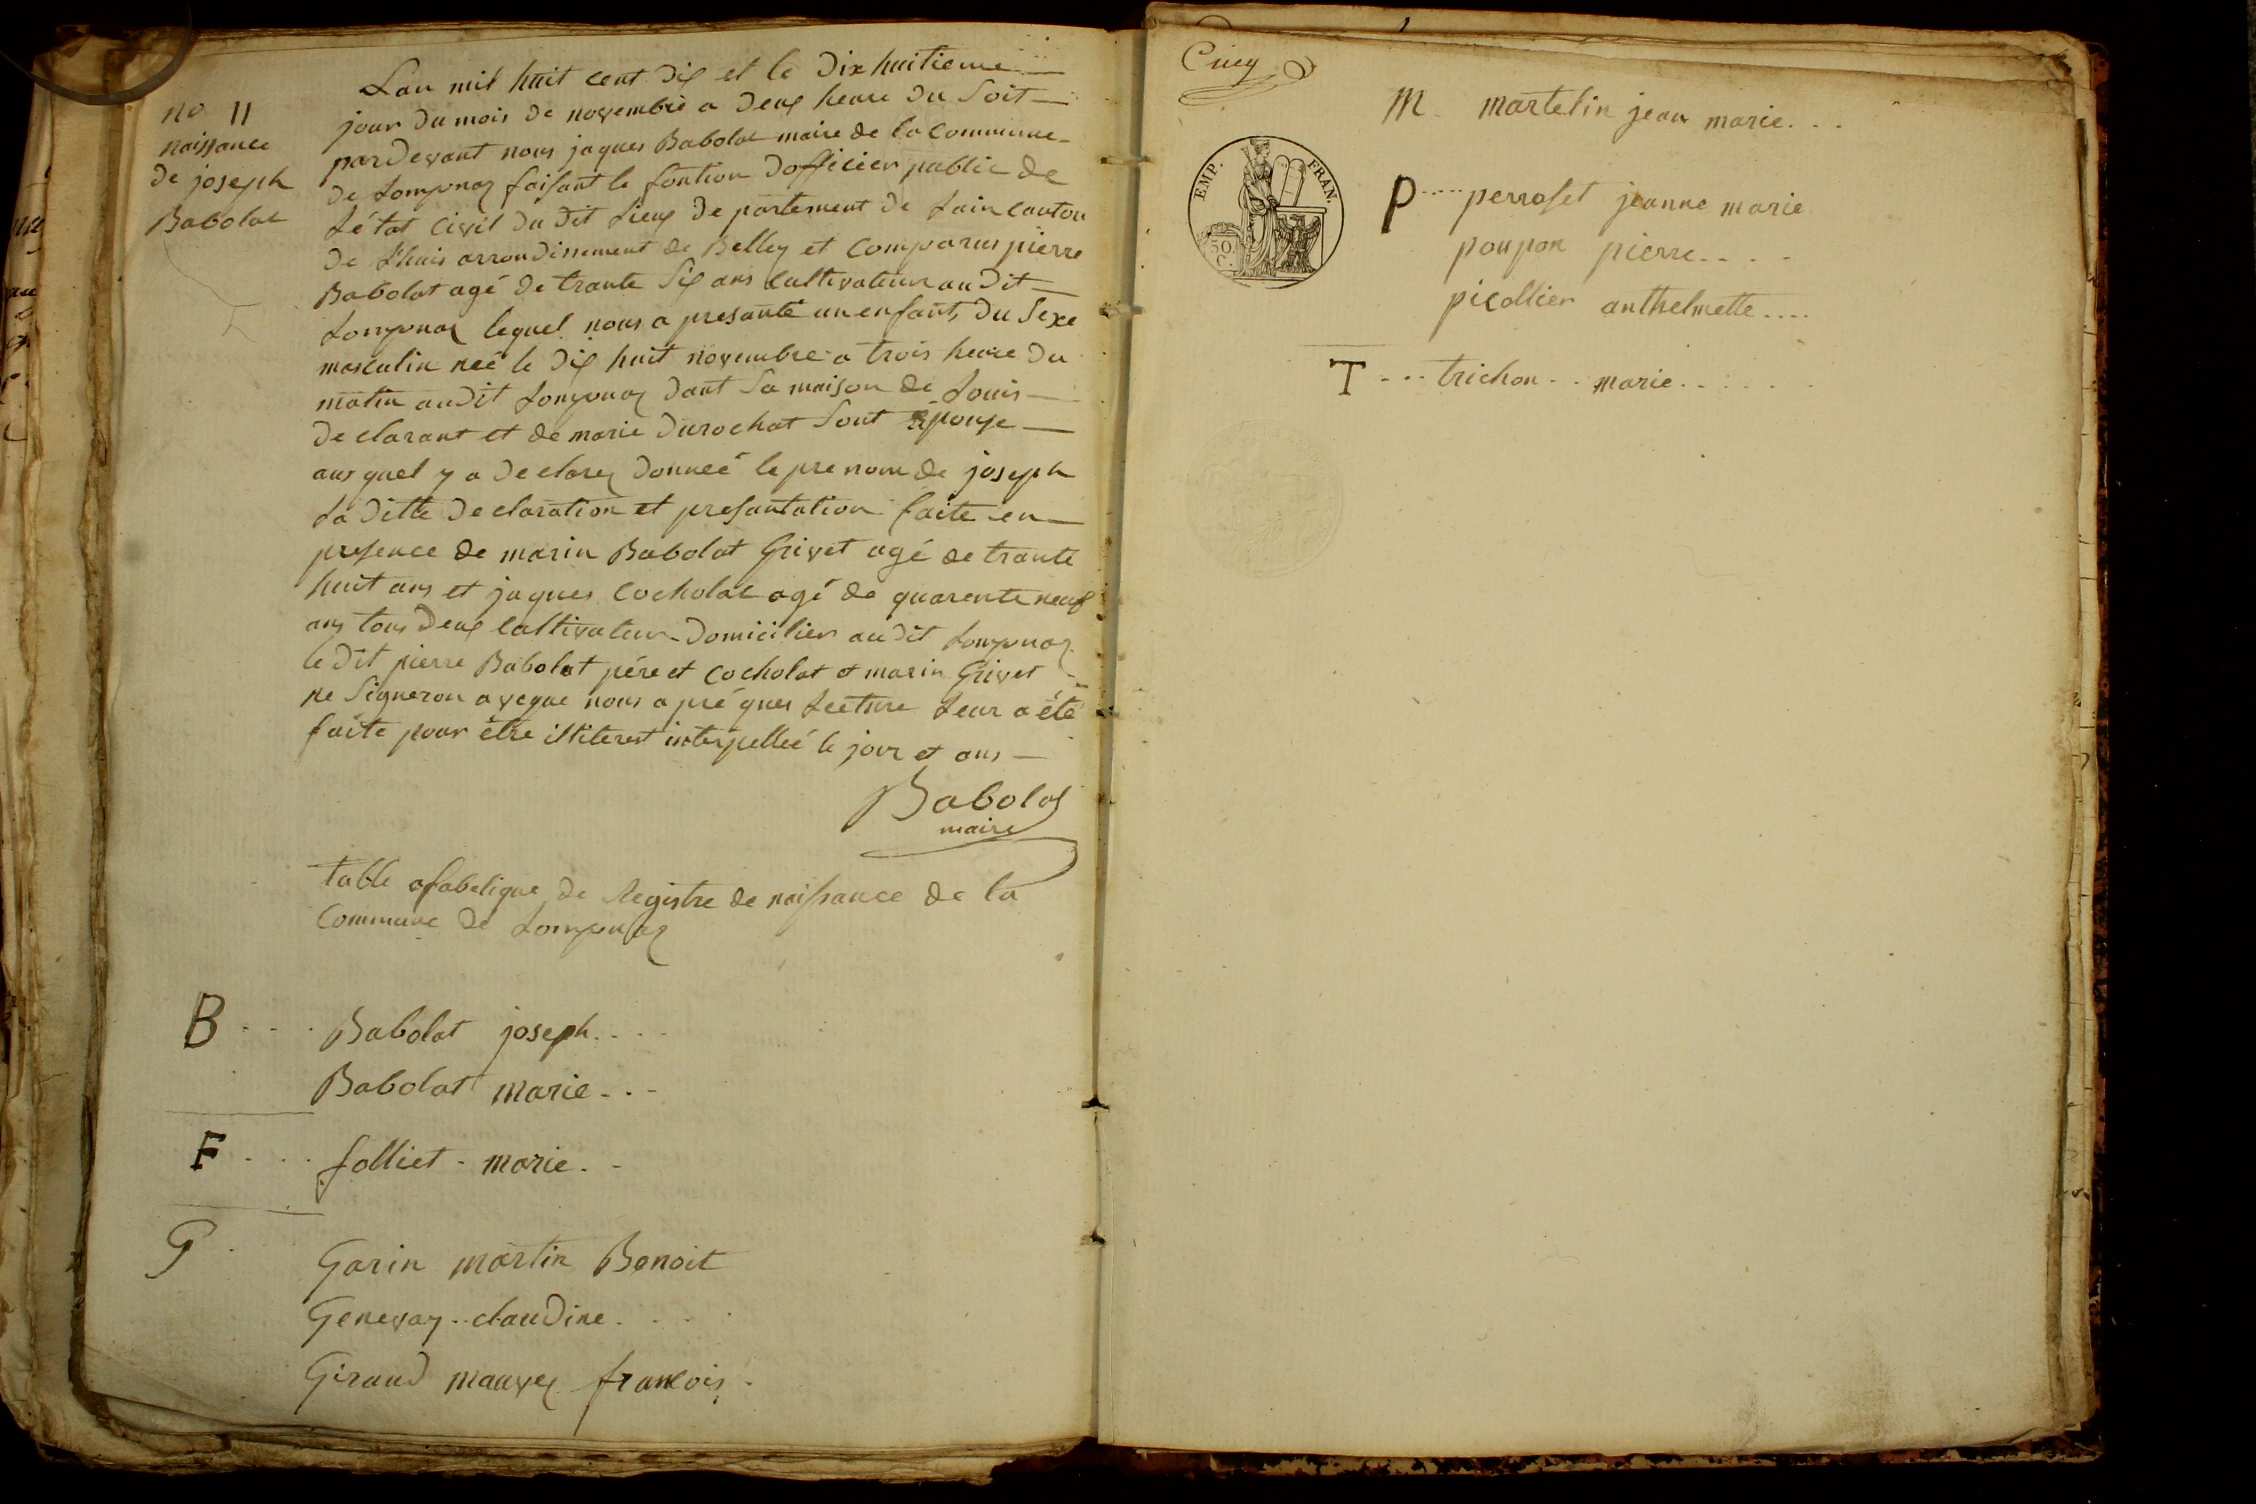 no 11
naissance
de joseph
Babolat
Lan mil huit cent dix et le dix huitieme
jour du mois de novembre a deux heure du soit
pardevant nous jaques Babolat maire de la commune
de Lompnaz faisant le fontion dofficier public de
Létat civil du dit Lieux departement de Lain canton
de Lhuis arrondissement de Belley et comparus pierre
Babolat agé de trante six ans cultivateur au dit
Lompnaz lequel nous a presanté un enfant du sexe
masculin neé le dix huit novembre a trois heure du
matin audit Lompnaz dant sa maison de Louis
declarant et de marie durochat sont epouse
aus quel y a declarez donneé le prenom de joseph
La ditte declaration et presantation faite en
presence de marin Babolat Grivet agé de trante
huit ans et jaques cocholat agé de quarente neuf
ans tous deux cultivateur domicilier audit Lompnaz
le dit pierre Babolat pére et cocholat et marin Grivet
ne signeron aveque nous apré ques Lecture Leur a été
faite pour étre illiterest interpelleé le jour et ans
Babolat
maire
table afabetique de Registre de naissance de la
Commune de Lompnaz
B Babolat joseph
Babolat marie
F folliet marie
G
Garin martin Benoit
Genevay claudine
Giraud mauvez francois
Cinq
EMP. FRAN.
50
C.
M martelin jean marie
P perroset jeanne marie
poupon pierre
picollier anthelmette
T trichon marie